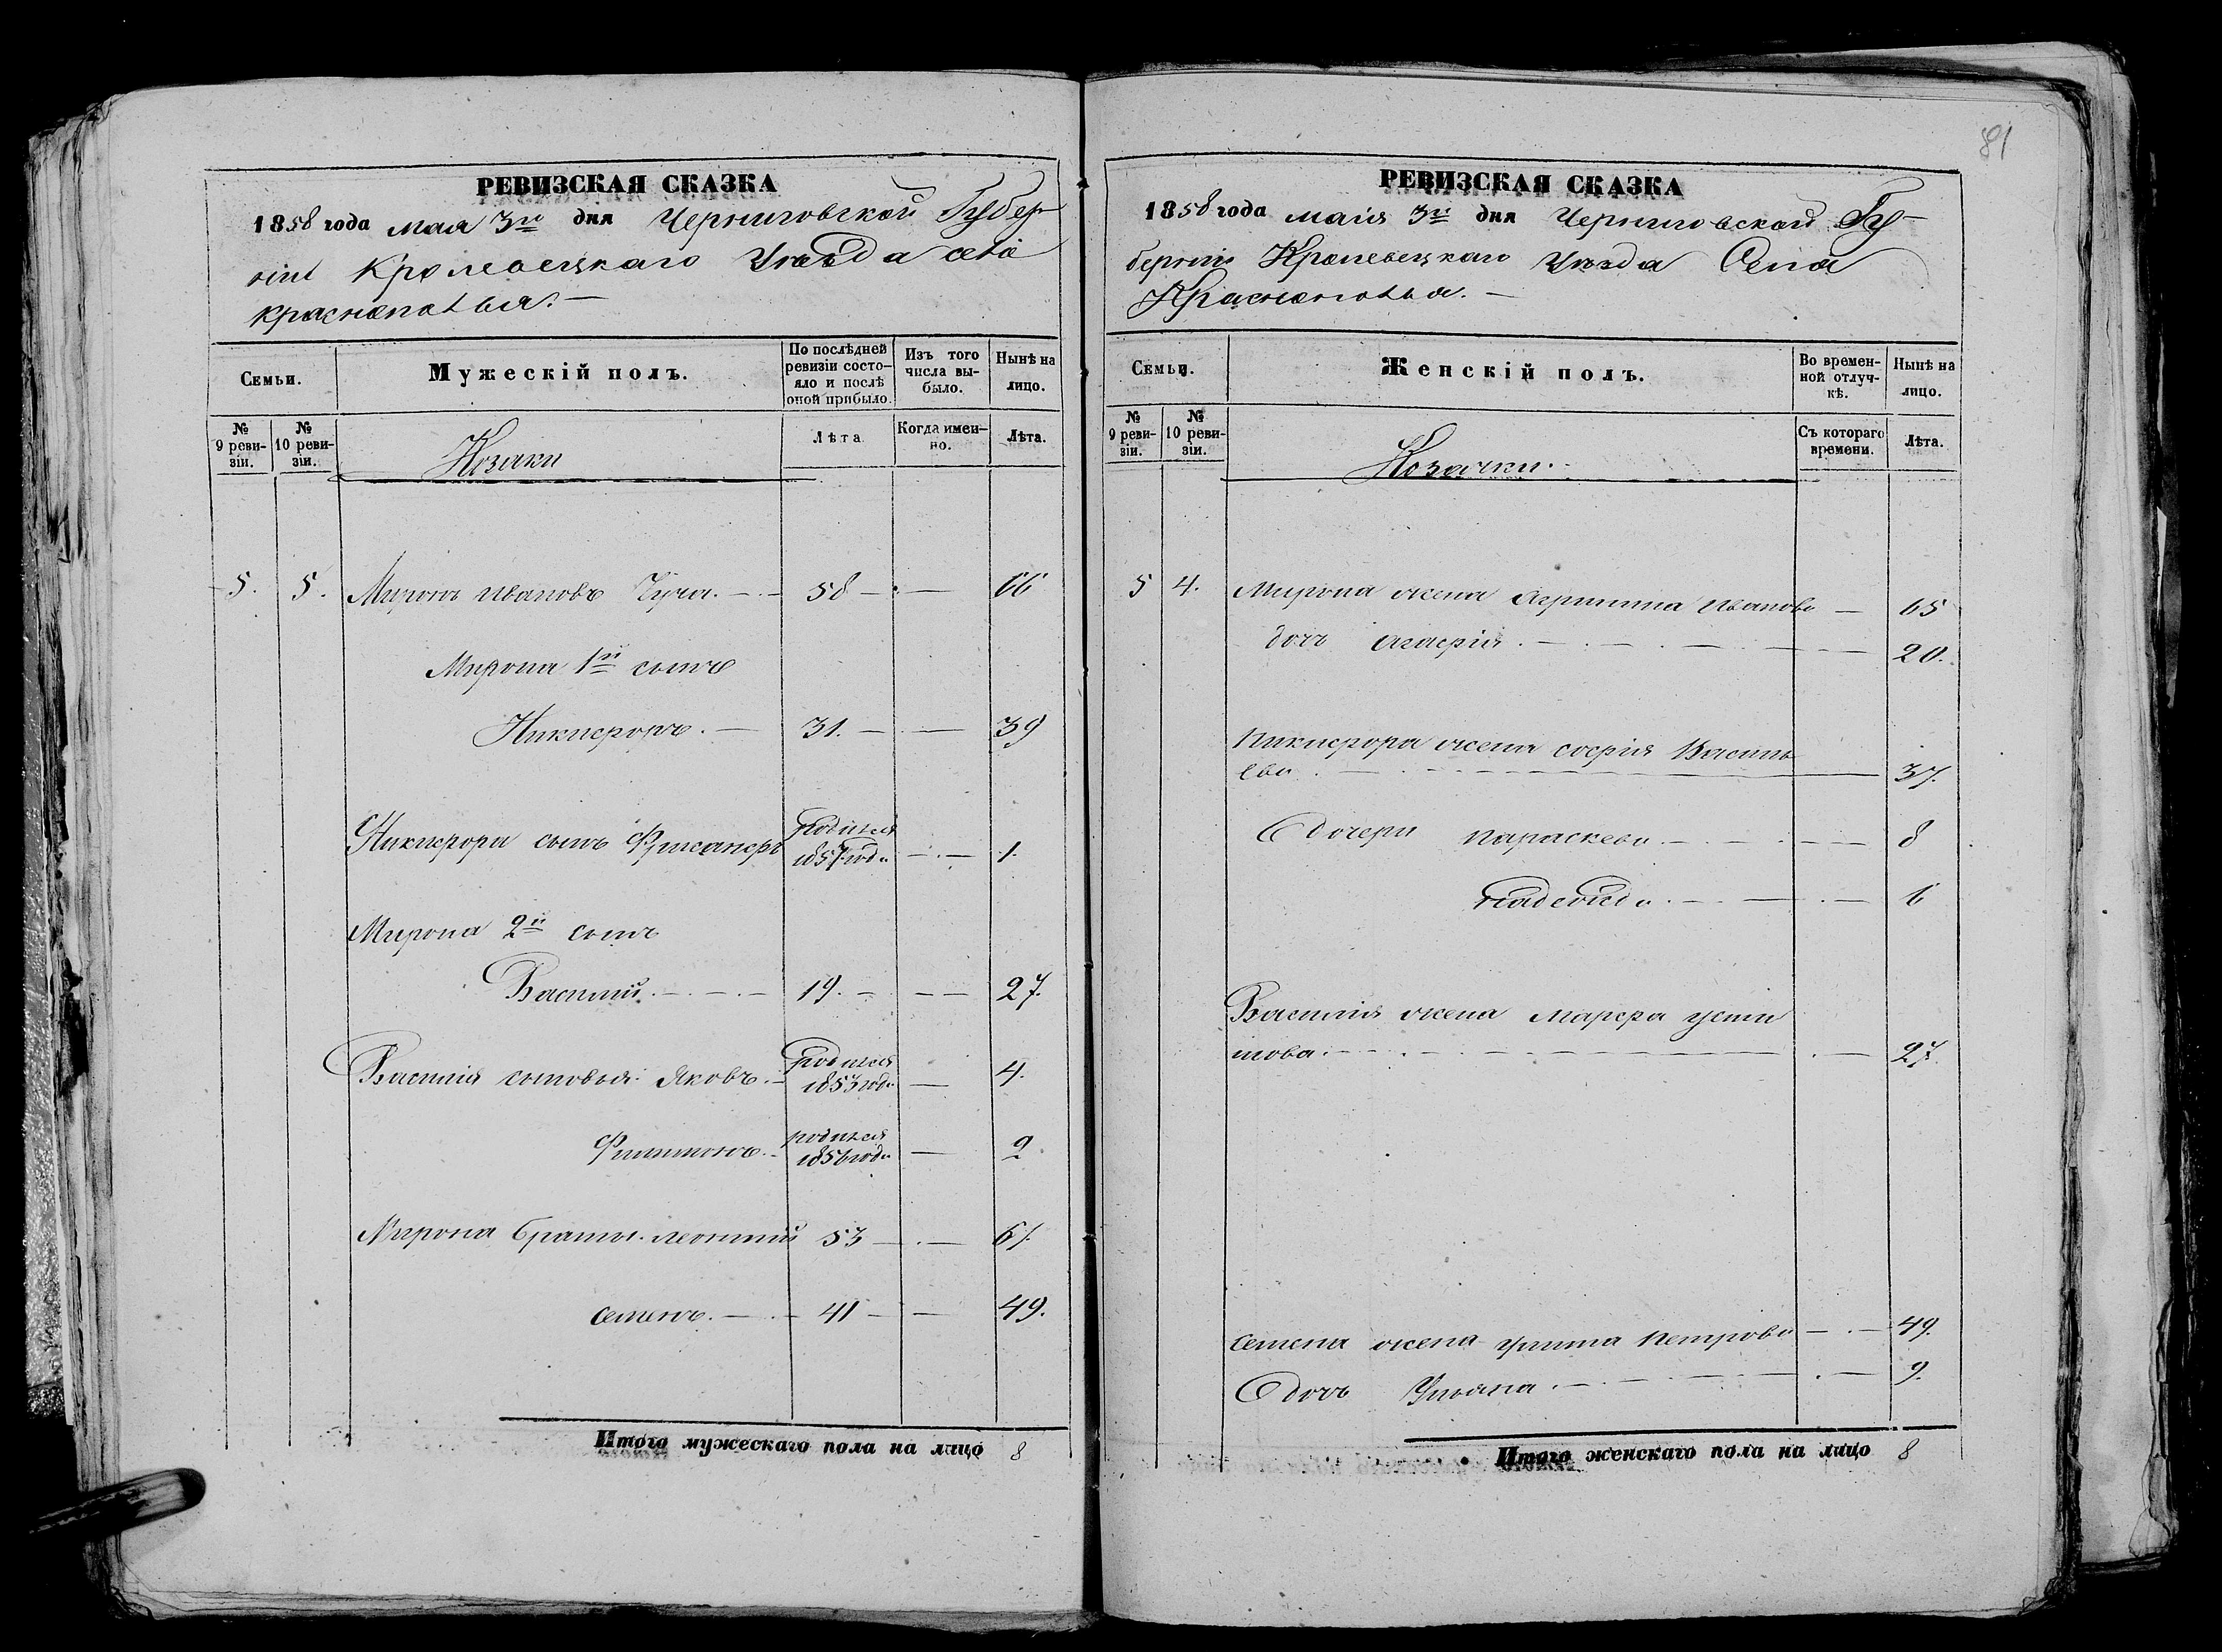 81
РЕВИЗСКАЯ СКАЗКА
1858 года мая 3го дня Черниговской Губер
нiи Кролевецкаго Уѣзда села
Краснополья. —
Семьи.
Мужескiй полъ.
По послѣдней ревизiи состо-яло и послѣ оной прибыло.
Изъ того числа вы-было.
Нынѣ на лицо.
№ 9 реви-зiи.
№ 10 реви-зiи.
Козаки
Лѣта
Когда имен-но.
Лѣта.
5. 5. Миронъ Ивановъ 58 — 66
Мирона 1й сынъ
Никифоръ. — 31. — 39
Никифора сынъ родился 1857 года — 1.
Мирона 2й сынъ
Василiй. — 19. — 27.
Василiя сыновья Яковъ. родился 1853 года — 4.
Филимонъ. родился 1856 года — 2
Мирона братья Леонтiй 53 — 61
Семенъ. — 41 — 49.
Итого мужескаго пола на лицо 8
РЕВИЗСКАЯ СКАЗКА
1858 года мая 3го дня Черниговской Гу-
бернiи Кролевецкаго Уѣзда Села
Краснополья. —
Семьи.
Женскiй полъ.
Во времен-ной отлуч-кѣ.
Нынѣ на лицо.
№ 9 реви-зiи.
№ 10 реви-зiи.
Козачки.
Съ котораго времени.
Лѣта.
5 4. Мирона жена Агрипина Иванова — 65
дочь Агафiя. — 20.
Никифора жена софiя Василь
ева — 37.
дочери Параскева. — 8
Надежда. — 6
Василiя жена Марфа Усти
нова. — 27.
Семена жена Улита Петрова — 49.
дочь Ульяна. — 9.
Итого женскаго пола на лицо 8